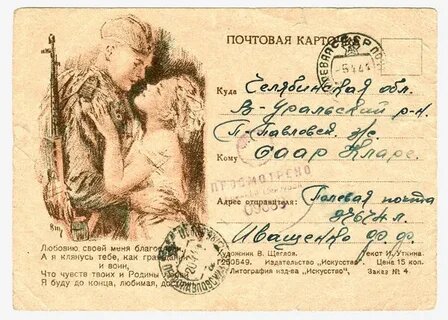 ПОЧТОВАЯ КАРТОЧКА
Куда Челябинская обл.
В-Уральский р-н
П-Павловск. ж/с
Кому Саар Кларе
ПРОСМОТРЕНО
Адрес отправителя: Полевая почта
Иващенко Ф. Ф.
Любовию своей меня
А я клянусь тебе, как
и воин,
Что чувств твоих и Родины
Я буду до конца, любимая,
Художник В. Щеглов. Текст И. Уткина.
Издательство „Искусство“. Цена 15 коп.
Литография изд-ва „Искусство“. Заказ № 4.